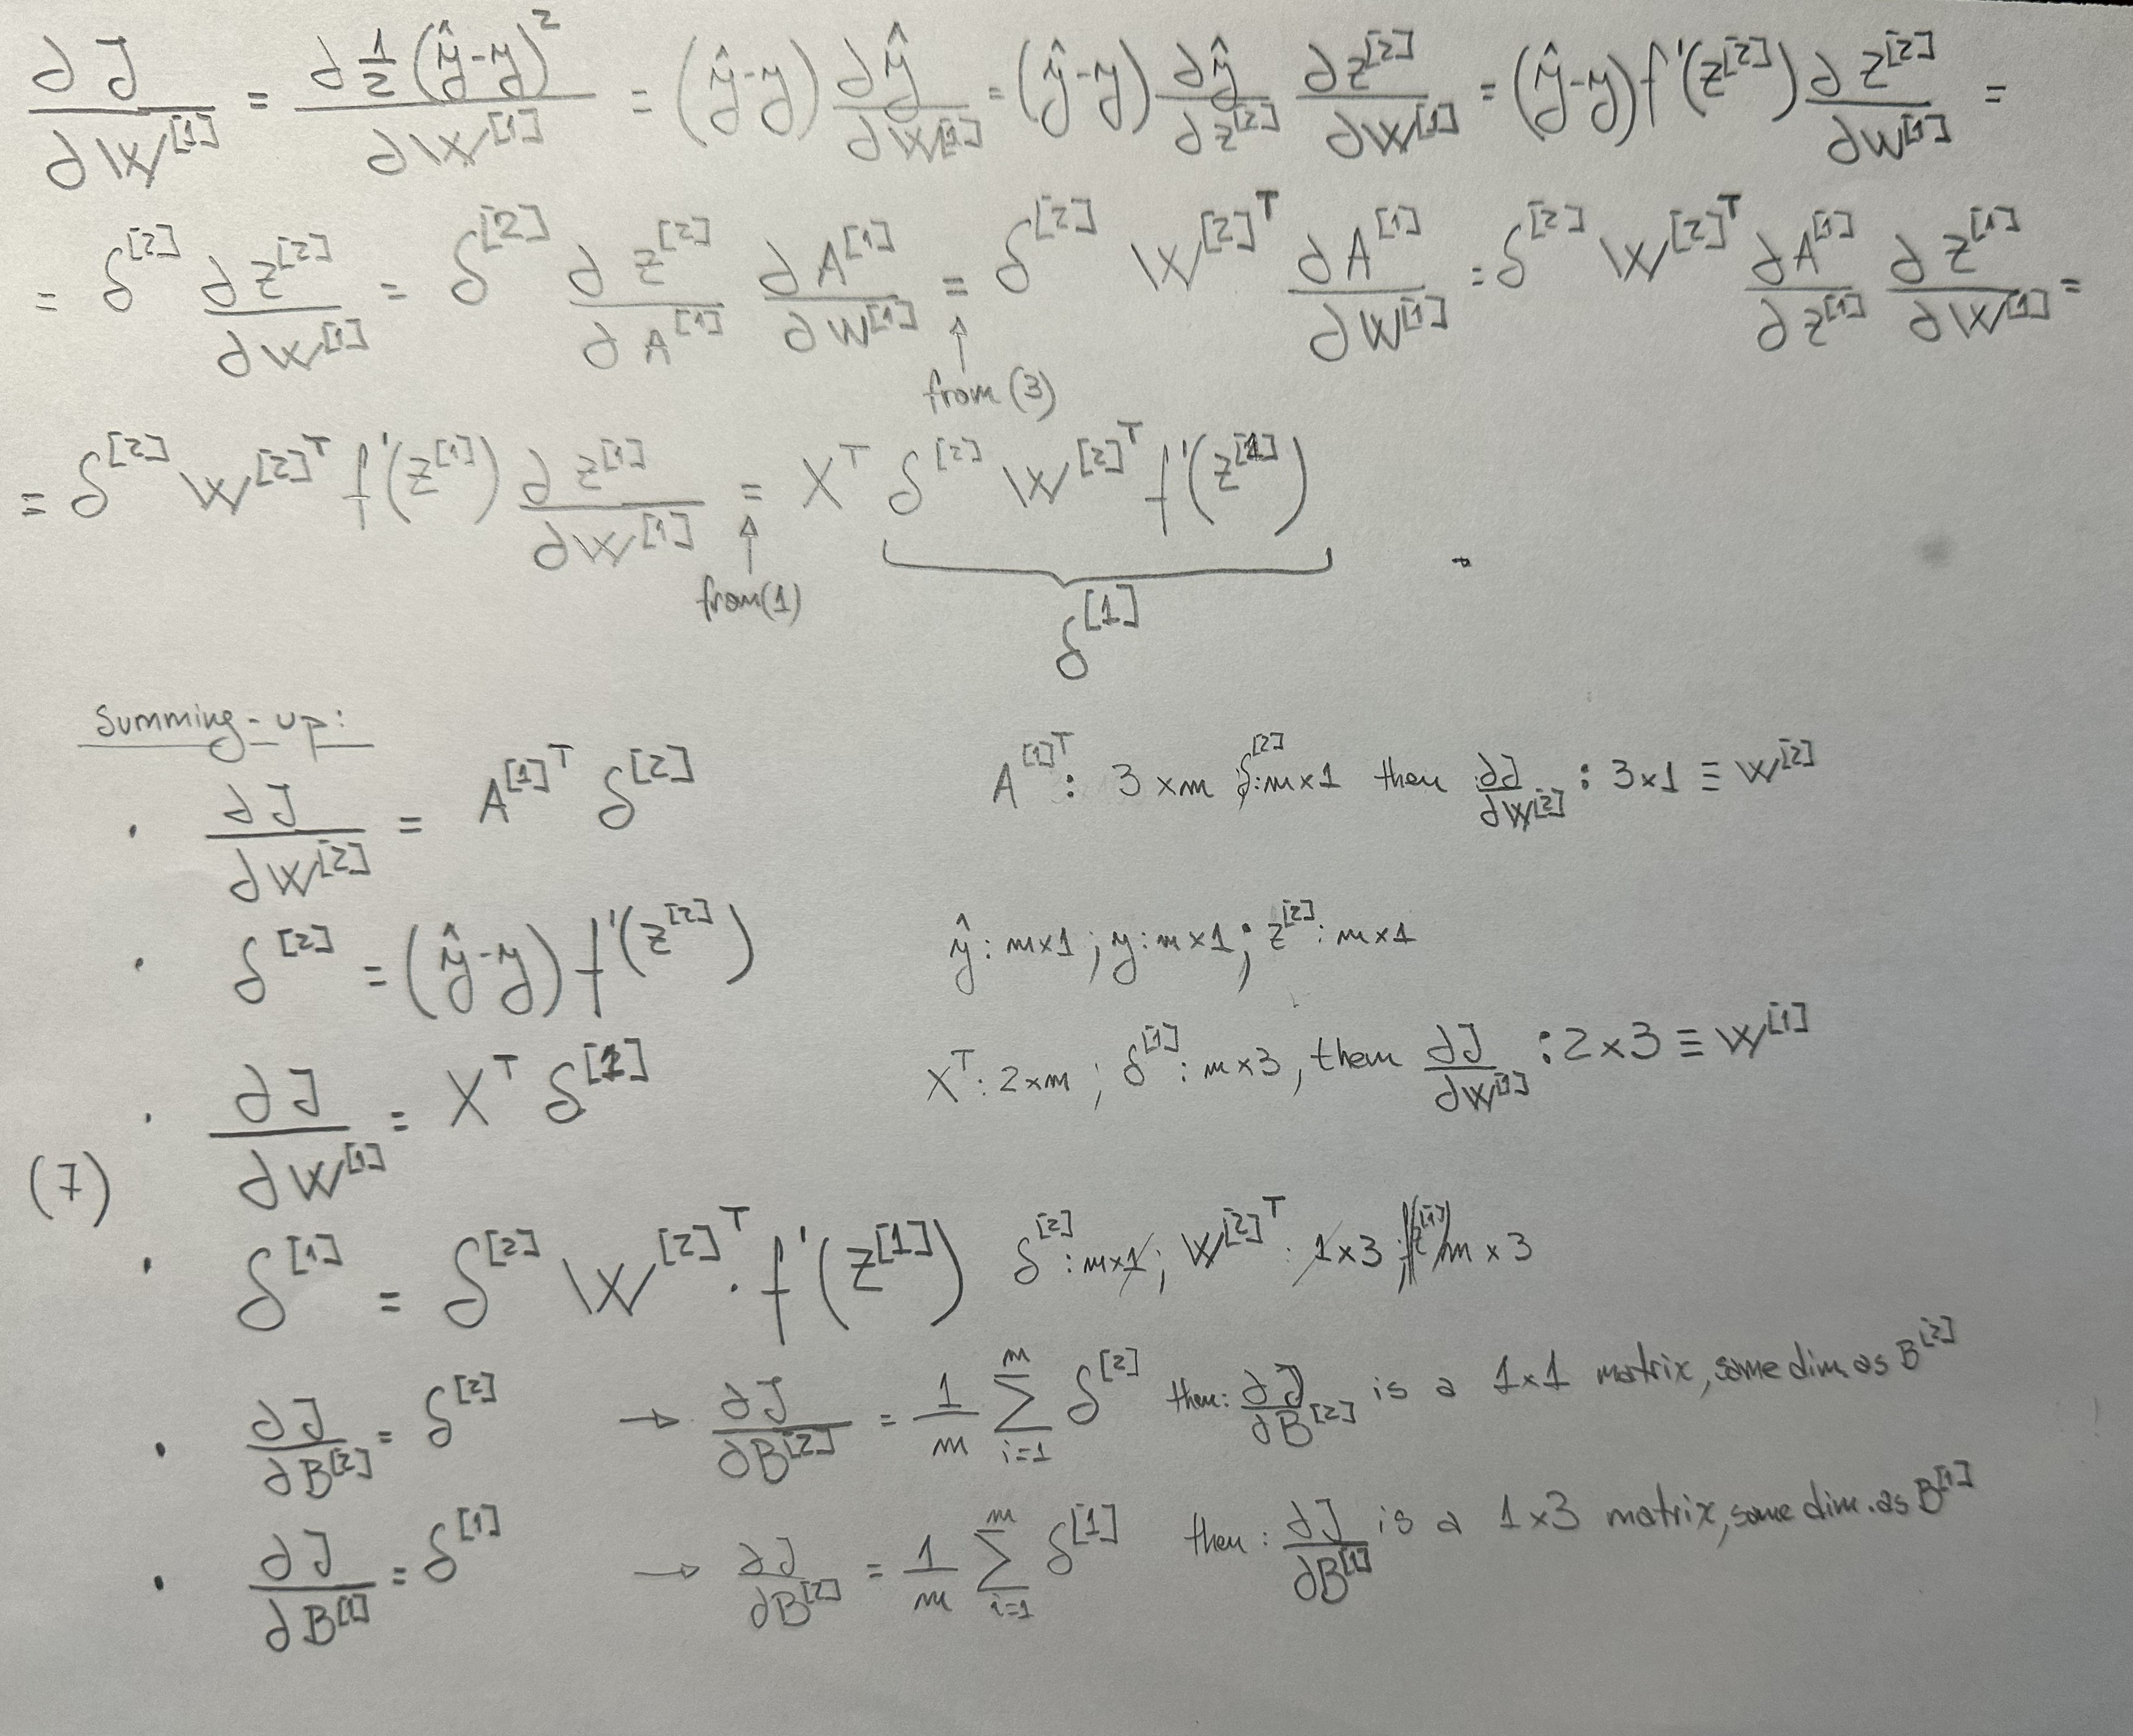 ∂J/∂W^[1] = ∂ 1/2 (ŷ-y)^2 / ∂W^[1] = (ŷ-y) ∂ŷ/∂W^[1] = (ŷ-y) ∂ŷ/∂z^[2] ∂z^[2]/∂W^[1] = (ŷ-y) f'(z^[2]) ∂z^[2]/∂W^[1] =
= δ^[2] ∂z^[2]/∂W^[1] = δ^[2] ∂z^[2]/∂A^[1] ∂A^[1]/∂W^[1] = δ^[2] W^[2]^T ∂A^[1]/∂W^[1] = δ^[2] W^[2]^T ∂A^[1]/∂z^[1] ∂z^[1]/∂W^[1] =
↑
from (3)
= δ^[2] W^[2]^T f'(z^[1]) ∂z^[1]/∂W^[1] = X^T δ^[2] W^[2]^T f'(z^[1])
↑
from (1)
δ^[1]
Summing-up:
· ∂J/∂W^[2] = A^[1]^T δ^[2] A^[1]^T: 3×m δ^[2]: m×1 then ∂J/∂W^[2] : 3×1 ≡ W^[2]
· δ^[2] = (ŷ-y) f'(z^[2]) ŷ: m×1 ; y: m×1 ; z^[2]: m×1
· ∂J/∂W^[1] = X^T δ^[1] X^T: 2×m ; δ^[1]: m×3, then ∂J/∂W^[1] : 2×3 ≡ W^[1]
(7)
· δ^[1] = δ^[2] W^[2]^T · f'(z^[1]) δ^[2]: m×1 ; W^[2]^T: 1×3 ; f'(z^[1]) m×3
· ∂J/∂B^[2] = δ^[2] → ∂J/∂B^[2] = 1/m ∑_{i=1}^{m} δ^[2] then: ∂J/∂B^[2] is a 1×1 matrix, same dim. as B^[2]
· ∂J/∂B^[1] = δ^[1] → ∂J/∂B^[2] = 1/m ∑_{i=1}^{m} δ^[1] then: ∂J/∂B^[1] is a 1×3 matrix, same dim. as B^[1]